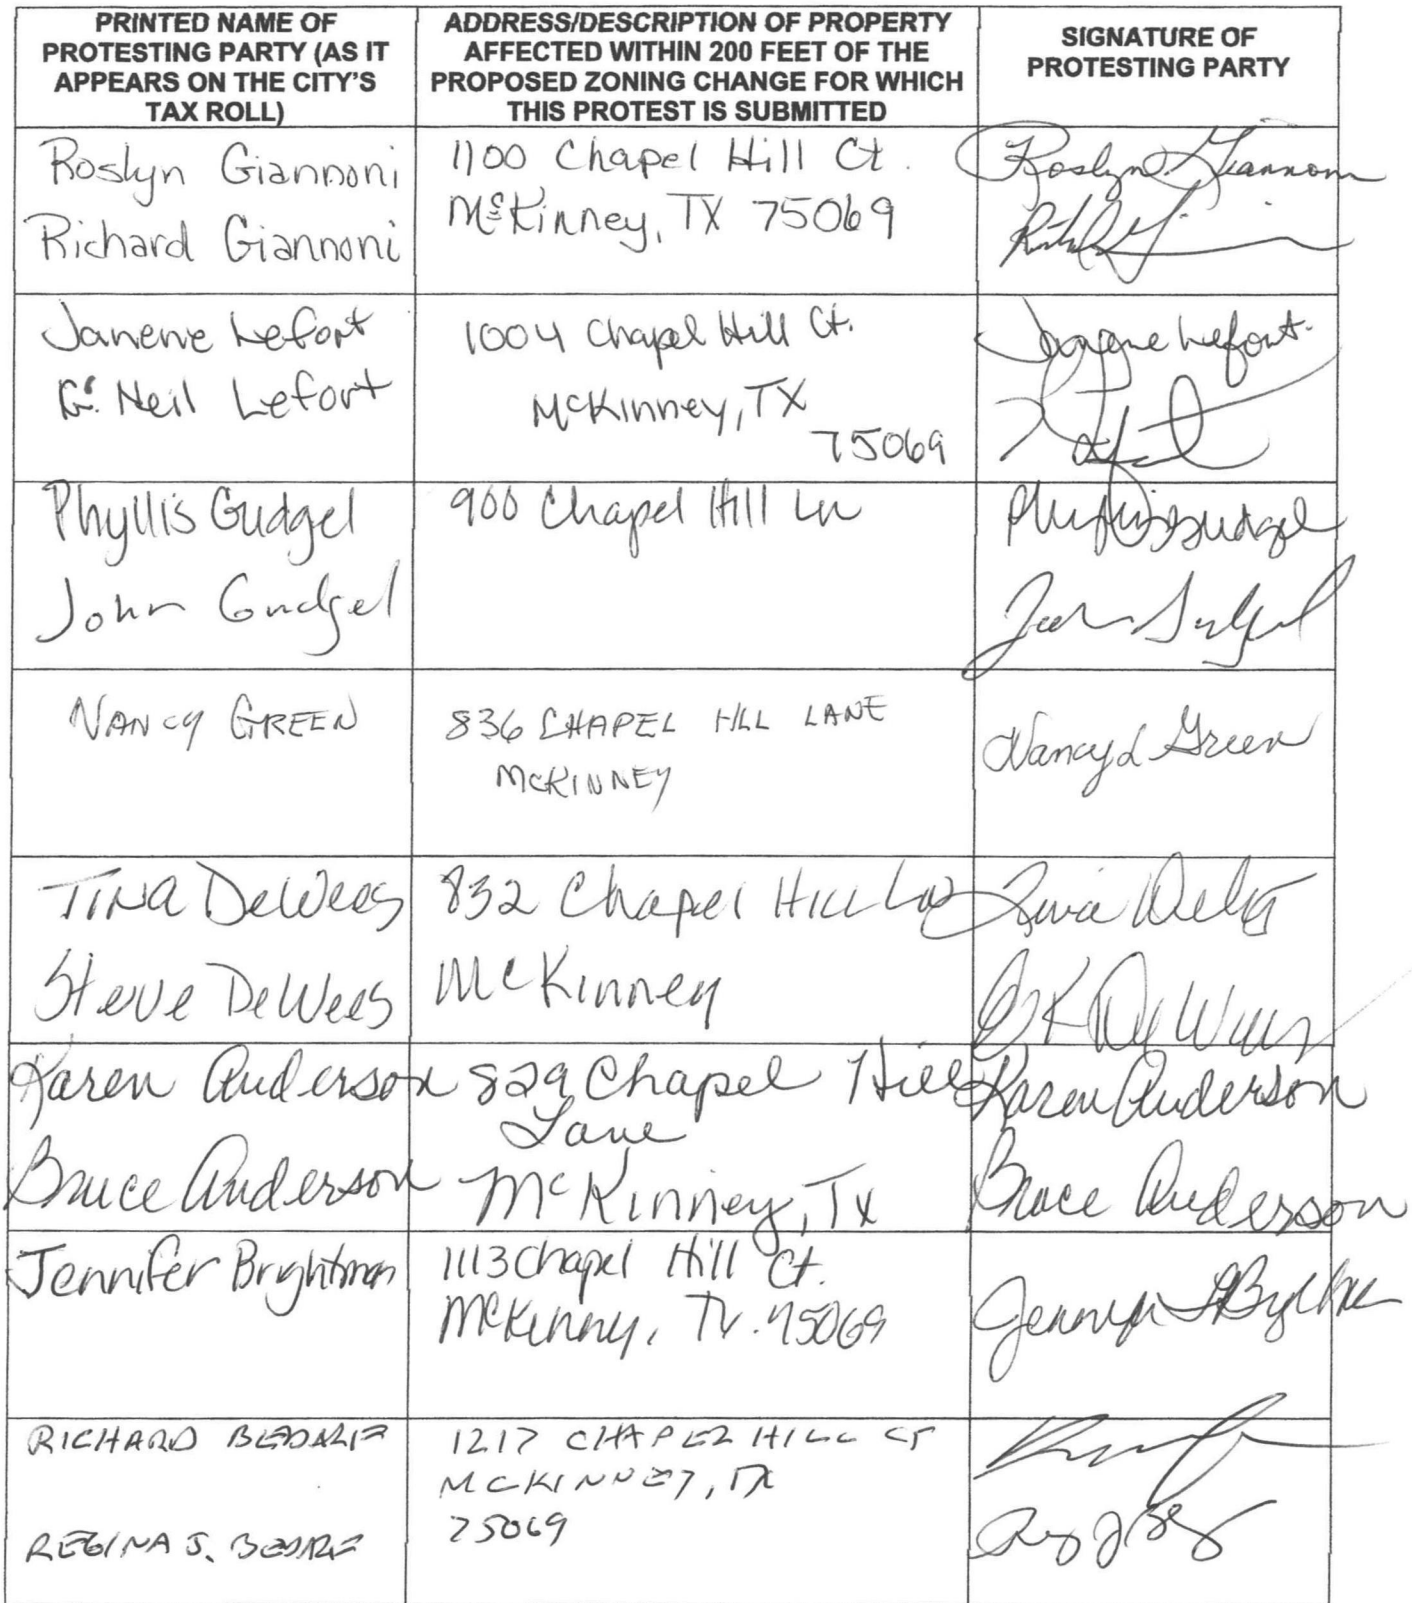 PRINTED NAME OF
PROTESTING PARTY (AS IT
APPEARS ON THE CITY'S
TAX ROLL)
ADDRESS/DESCRIPTION OF PROPERTY
AFFECTED WITHIN 200 FEET OF THE
PROPOSED ZONING CHANGE FOR WHICH
THIS PROTEST IS SUBMITTED
SIGNATURE OF
PROTESTING PARTY
Roslyn Giannoni
Richard Giannoni
1100 Chapel Hill Ct.
McKinney, TX 75069
Roslyn Giannoni
Janene Lefort
G. Neil Lefort
1004 Chapel Hill Ct.
McKinney, TX
75069
Janene Lefort
Phyllis Gudgel
John Gudgel
900 Chapel Hill Ln
Phyllis Gudgel
John Gudgel
NANCY GREEN
836 CHAPEL HILL LANE
McKINNEY
Nancy L Green
TINA DeWees
Steve DeWees
832 Chapel Hill Ln
McKinney
Karen Anderson
Bruce Anderson
829 Chapel Hill
Lane
McKinney, Tx
Karen Anderson
Bruce Anderson
Jennifer Brightman
1113 Chapel Hill Ct.
McKinny, Tx. 75069
RICHARD
REGINA J.
1217 CHAPEL HILL CT
MCKINNEY, TX
75069